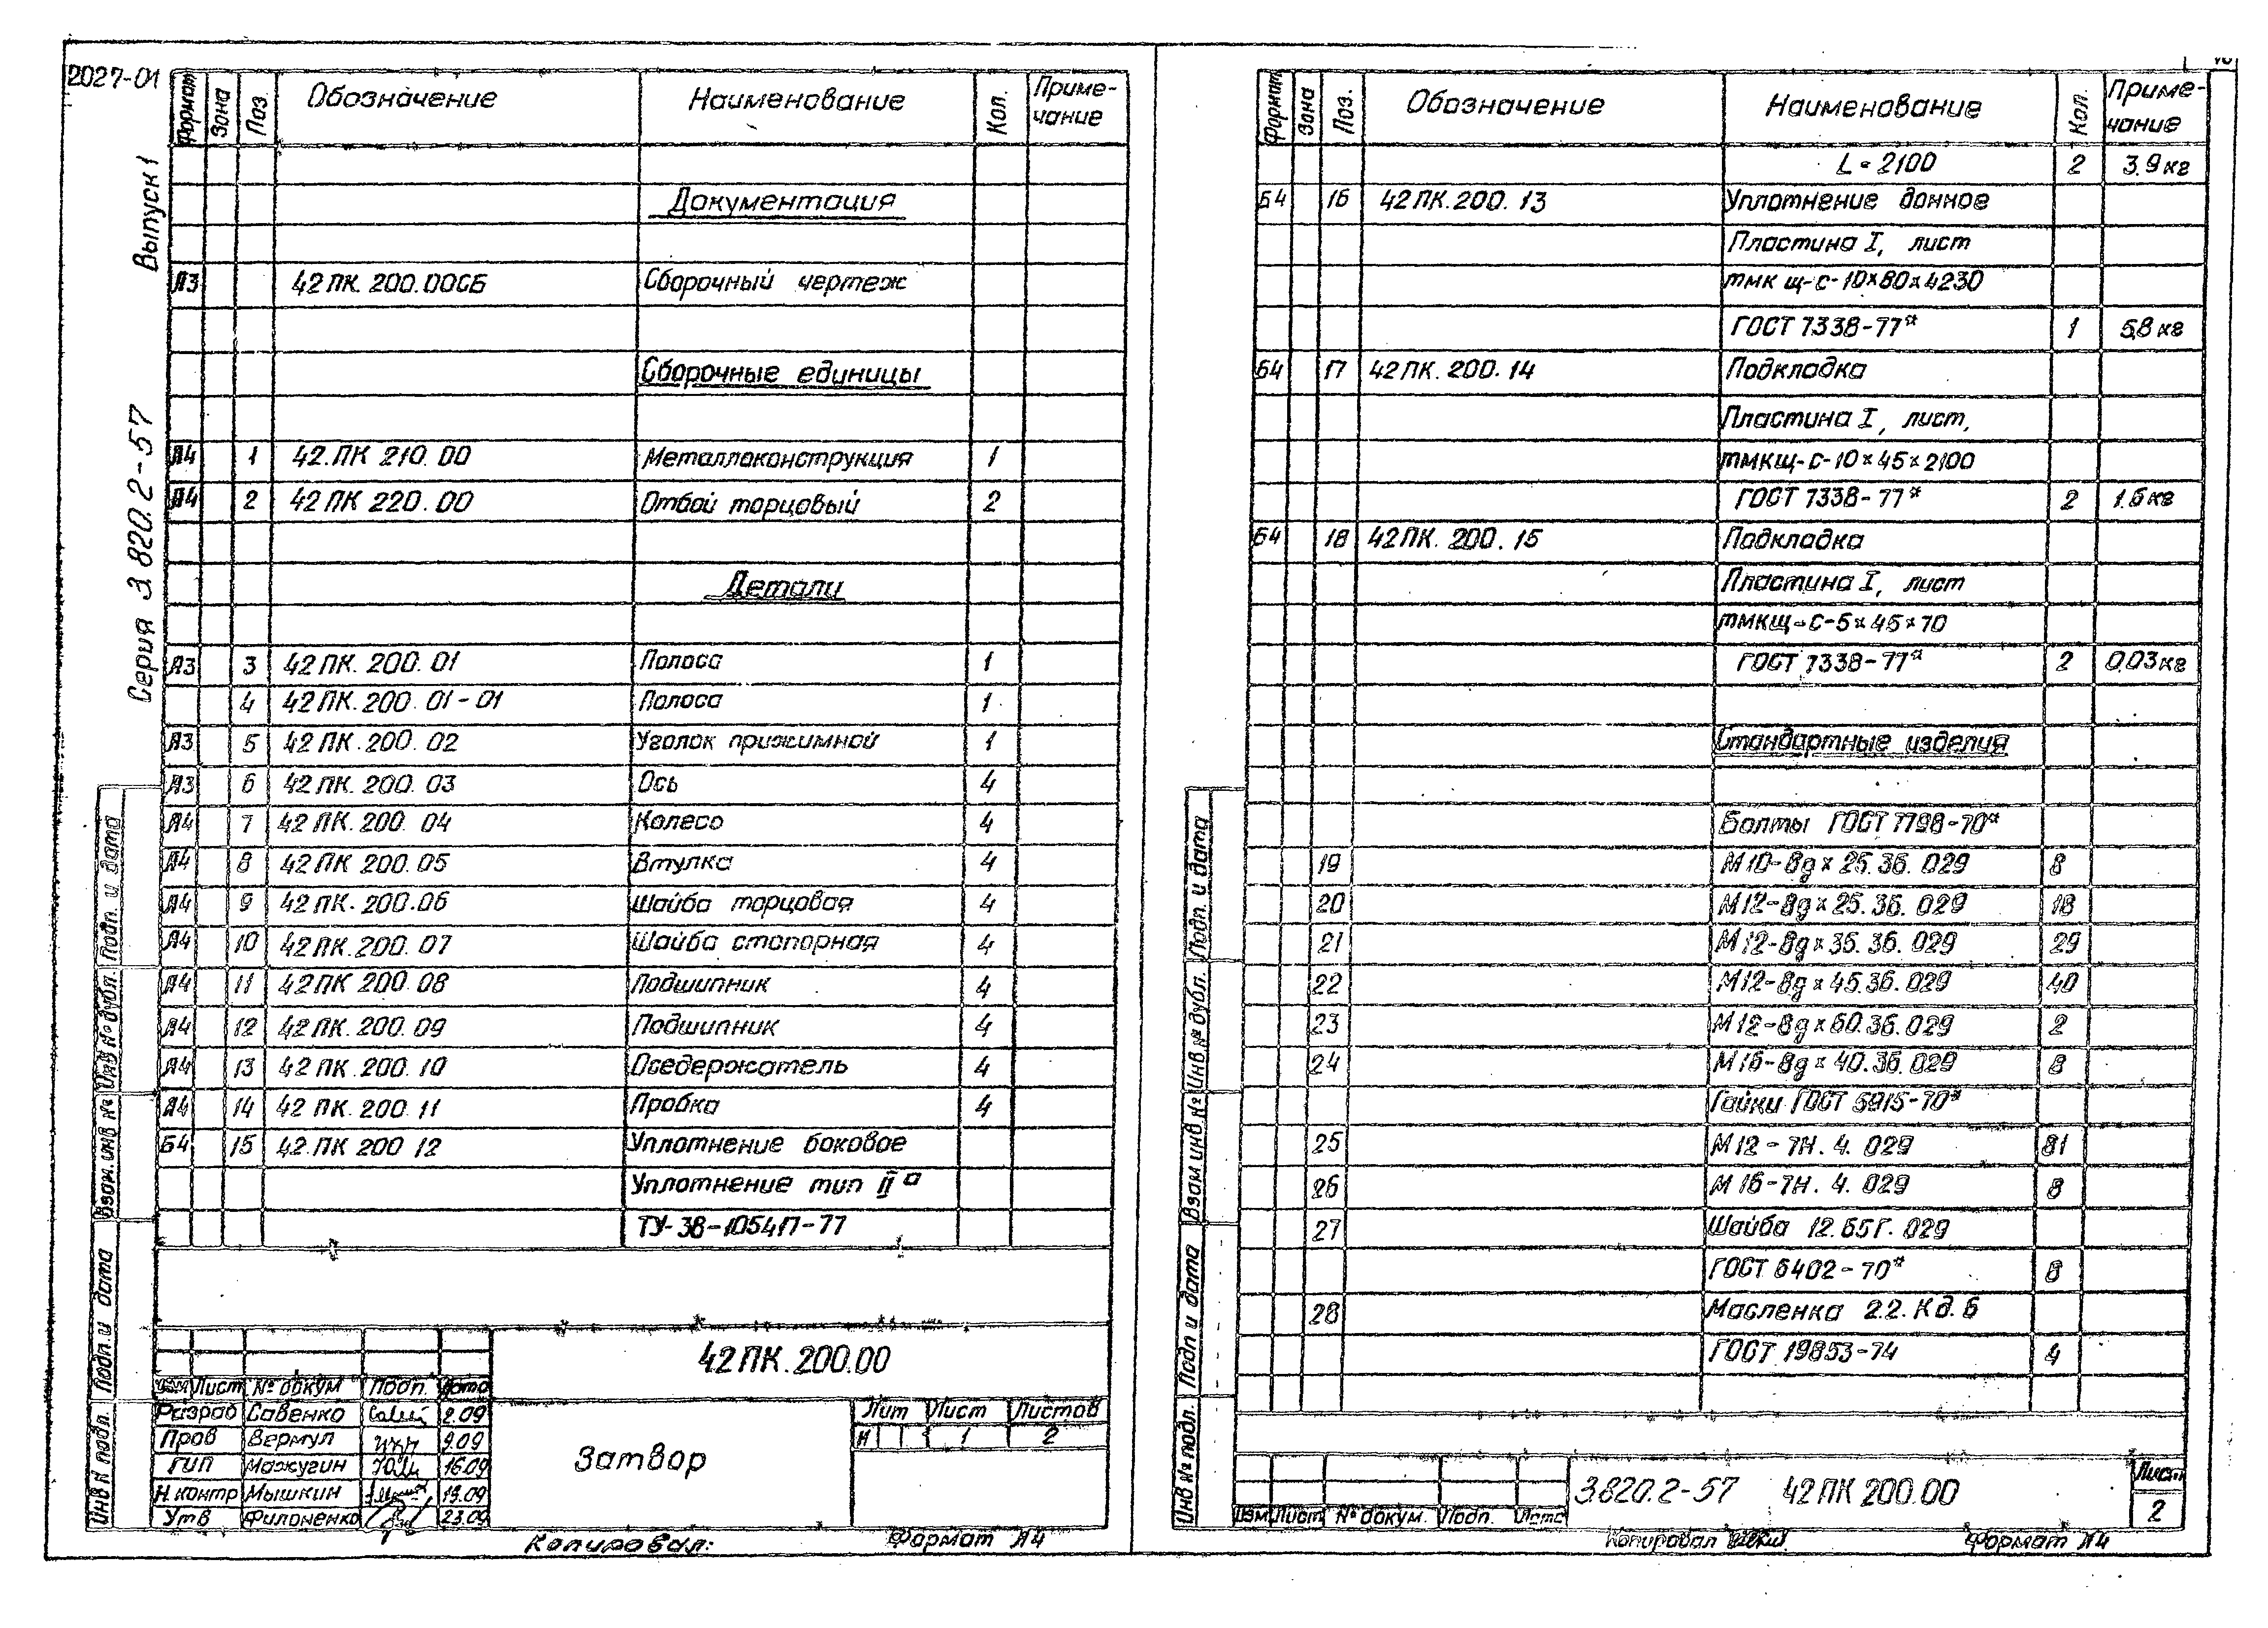 2027-01
Выпуск 1
Серия 3.820.2-57
Формат Зона Поз. Обозначение Наименование Кол. Приме-
чание
Документация
А3 42ПК.200.00СБ Сборочный чертеж
Сборочные единицы
А4 1 42.ПК 210.00 Металлоконструкция 1
А4 2 42ПК 220.00 Отбой торцовый 2
Детали
А3 3 42ПК.200.01 Полоса 1
4 42ПК.200.01-01 Полоса 1
А3 5 42ПК.200.02 Уголок прижимной 1
А3 6 42ПК.200.03 Ось 4
А4 7 42ПК.200 04 Колесо 4
А4 8 42ПК 200.05 Втулка 4
А4 9 42ПК.200.06 Шайба торцовая 4
А4 10 42ПК.200.07 Шайба стопорная 4
А4 11 42ПК 200.08 Подшипник 4
А4 12 42ПК.200.09 Подшипник 4
А4 13 42ПК.200.10 Оседержатель 4
А4 14 42 ПК.200.11 Пробка 4
Б4 15 42.ПК 200 12 Уплотнение боковое
Уплотнение тип IIа
ТУ-38-105417-77
42ПК.200.00
Изм Лист № докум Подп. Дата
Разраб Савенко 2.09
Пров Вермул 9.09
ГИП Мажугин 16.09
Н.контр Мышкин 19.09
Утв Филоненко 23.09
Затвор
Лит Лист Листов
И 1 2
Копировал:
Формат А4
Подп. и дата
Инв № дубл.
Взам. инв №
Подп. и дата
Инв № подл.
Формат Зона Поз. Обозначение Наименование Кол. Приме-
чание
L=2100 2 3.9кг
Б4 16 42ПК.200.13 Уплотнение донное
Пластина I, лист
тмкщ-с-10×80×4230
ГОСТ 7338-77* 1 5,8кг
Б4 17 42ПК.200.14 Подкладка
Пластина I, лист,
тмкщ-с-10×45×2100
ГОСТ 7338-77* 2 1.6кг
Б4 18 42ПК.200.15 Подкладка
Пластина I, лист
тмкщ-с-5×45×70
ГОСТ 7338-77* 2 0,03кг
Стандартные изделия
Болты ГОСТ 7798-70*
19 М10-8g×25.36.029 8
20 М12-8g×25.36.029 18
21 М12-8g×35.36.029 29
22 М12-8g×45.36.029 40
23 М12-8g×60.36.029 2
24 М16-8g×40.36.029 8
Гайки ГОСТ 5915-70*
25 М12-7Н.4.029 81
26 М16-7Н.4.029 8
27 Шайба 12.65Г.029
ГОСТ 6402-70* 8
28 Масленка 2.2.Кд.6
ГОСТ 19853-74 4
Изм Лист № докум. Подп. Дата
3.820.2-57 42ПК 200.00
Лист
2
Копировал
Формат А4
Подп. и дата
Инв № дубл.
Взам инв. №
Подп и дата
Инв № подл.